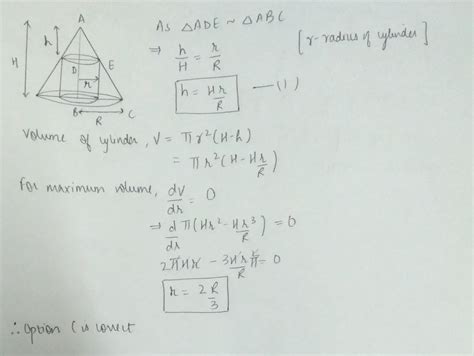 A
h
H
D
E
r
B
C
R
As △ADE ~ △ABC
[r - radius of cylinder]
⇒ h/H = r/R
h = Hr/R —(1)
Volume of cylinder, V = πr²(H-h)
= πr²(H - Hr/R)
For maximum volume, dV/dr = 0
⇒ d/dr π(Hr² - Hr³/R) = 0
2πHr - 3Hr²π/R = 0
r = 2R/3
∴ Option C is correct